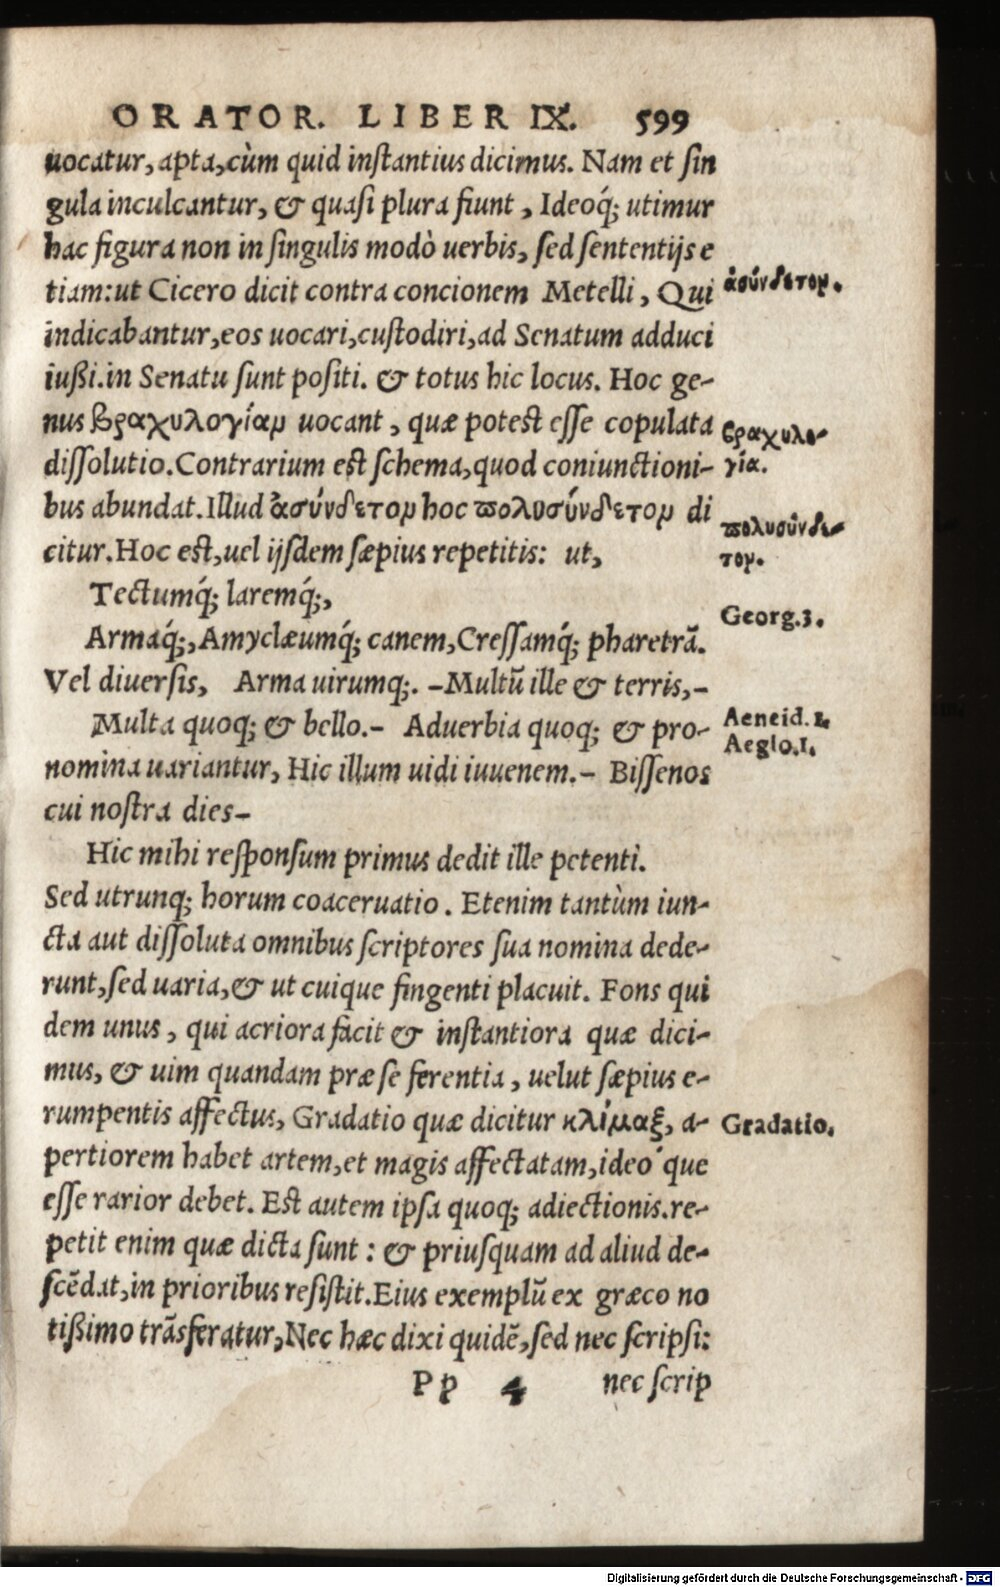 ORATOR. LIBER IX. 599
uocatur, apta, cùm quid instantius dicimus. Nam et sin
gula inculcantur, & quasi plura fiunt, Ideoq́; utimur
hac figura non in singulis modò uerbis, sed sententijs e
tiam: ut Cicero dicit contra concionem Metelli, Qui
ἀσύνδετον.
indicabantur, eos uocari, custodiri, ad Senatum adduci
iußi. in Senatu sunt positi. & totus hic locus. Hoc ge-
nus βραχυλογίαν uocant, quæ potest esse copulata
βραχυλο-
γία.
dissolutio. Contrarium est schema, quod coniunctioni-
bus abundat. Illud ἀσύνδετον hoc πολυσύνδετον di
πολυσύνδε-
τον.
citur. Hoc est, uel ijsdem sæpius repetitis: ut,
Tectumq́; laremq́;,
Georg.3.
Armaq́;, Amyclæumq́; canem, Cressamq́; pharetrã.
Vel diuersis, Arma uirumq;. -Multũ ille & terris,-
Multa quoq; & bello.- Aduerbia quoq; & pro-
Aeneid.1.
Aeglo.1.
nomina uariantur, Hic illum uidi iuuenem.- Bissenos
cui nostra dies-
Hic mihi responsum primus dedit ille petenti.
Sed utrunq; horum coaceruatio. Etenim tantùm iun-
cta aut dissoluta omnibus scriptores sua nomina dede-
runt, sed uaria, & ut cuique fingenti placuit. Fons qui
dem unus, qui acriora facit & instantiora quæ dici-
mus, & uim quandam præ se ferentia, uelut sæpius e-
rumpentis affectus, Gradatio quæ dicitur κλίμαξ, a-
Gradatio.
pertiorem habet artem, et magis affectatam, ideo que
esse rarior debet. Est autem ipsa quoq; adiectionis. re-
petit enim quæ dicta sunt: & priusquam ad aliud de-
scẽdat, in prioribus resistit. Eius exemplũ ex græco no
tißimo trãsferatur, Nec hæc dixi quidẽ, sed nec scripsi:
Pp 4 nec scrip
Digitalisierung gefördert durch die Deutsche Forschungsgemeinschaft - DFG